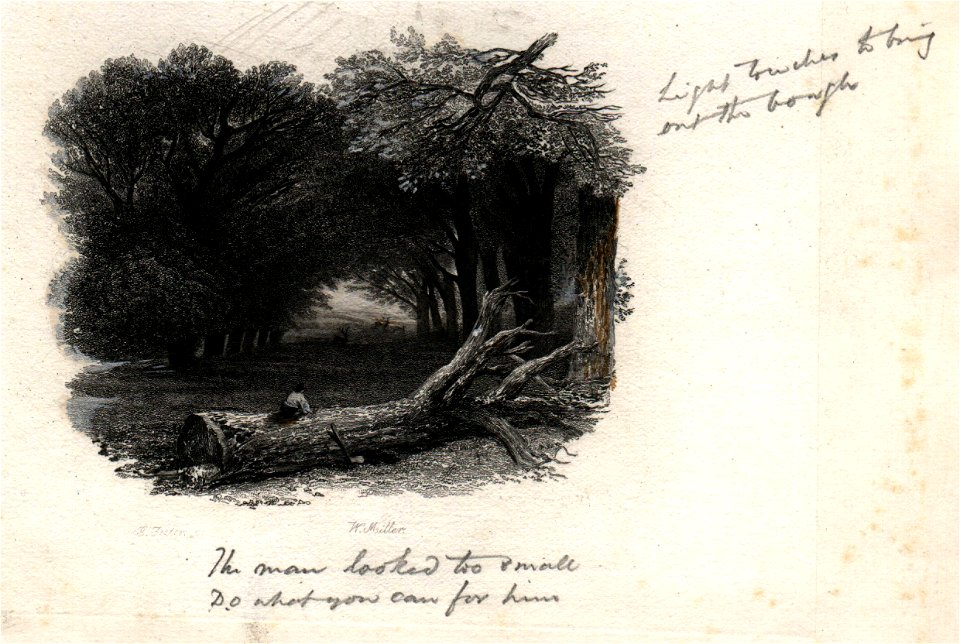 Light touches to bring
out the bough
B. Foster.
W. Miller.
The man looked too small
Do what you can for him